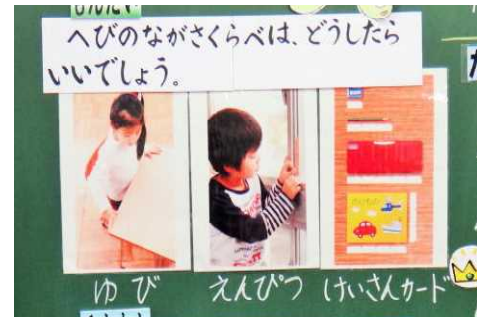 へびのながさくらべは、どうしたら
いいでしょう。
ゆび
えんぴつ
けいさんカード